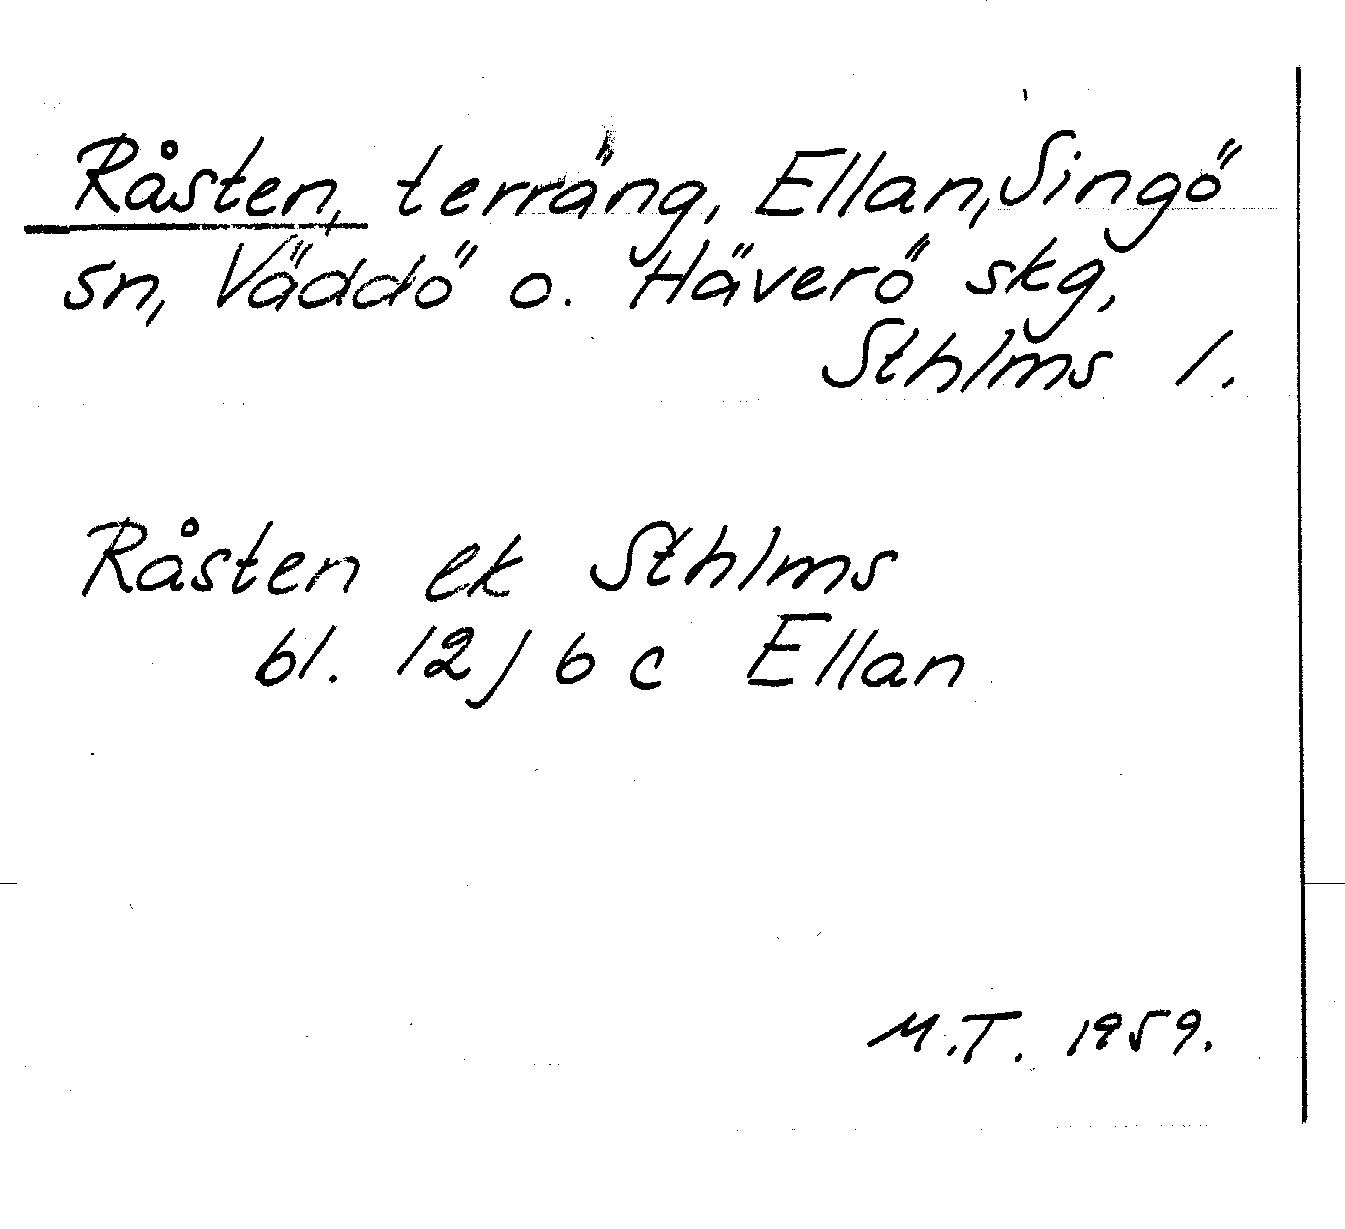 Råsten, terräng, Ellan, Singö
sn, Väddö o. Häverö skg,
Sthlms l.
Råsten ek Sthlms
bl. 12j 6 c Ellan
M.T. 1959.